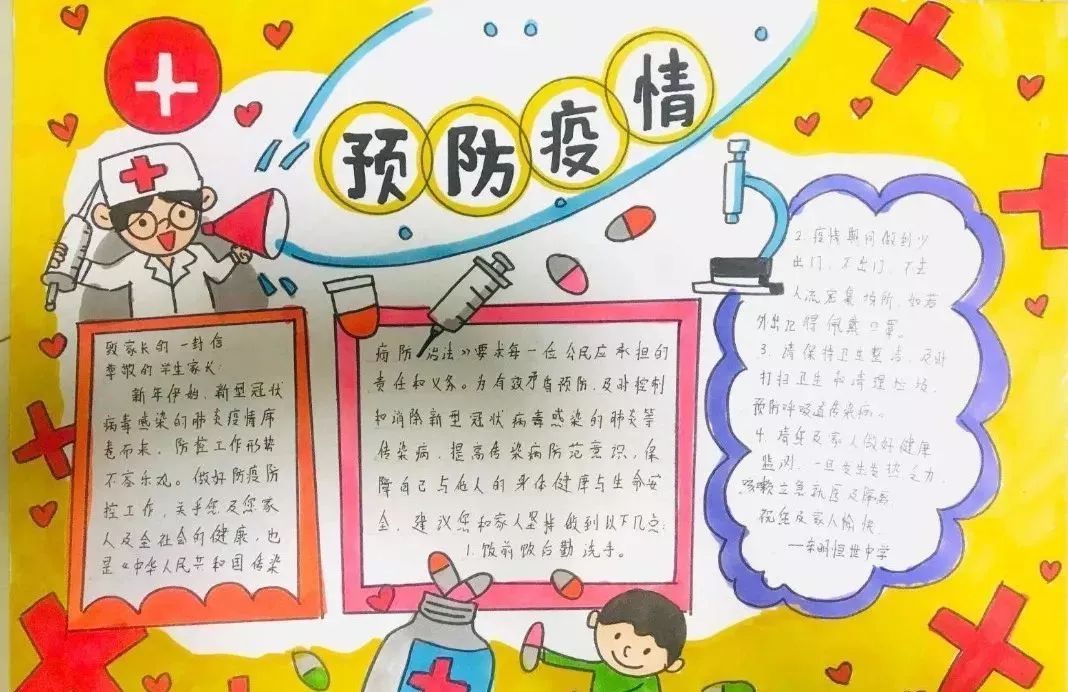 预防疫情
致家长的一封信
尊敬的学生家长:
新年伊始,新型冠状
病毒感染的肺炎疫情席
卷而来,防控工作形势
不容乐观。做好防疫防
控工作,关乎您及您家
人及全社会的健康,也
是《中华人民共和国传染
病防治法》要求每一位公民应承担的
责任和义务。为有效预防,及时控制
和消除新型冠状病毒感染的肺炎等
传染病,提高传染病防范意识,保
障自己与他人的身体健康与生命安
全,建议您和家人坚持做到以下几点:
1.饭前饭后勤洗手。
2.疫情期间做到少
出门、不出门、不去
人流密集场所,如若
外出记得佩戴口罩。
3.请保持卫生整洁,及时
打扫卫生和清理垃圾,
预防呼吸道传染病。
4.请您及家人做好健康
监测,一旦发生发热乏力,
咳嗽立急就医及隔离
祝您及家人愉快
恒世中学